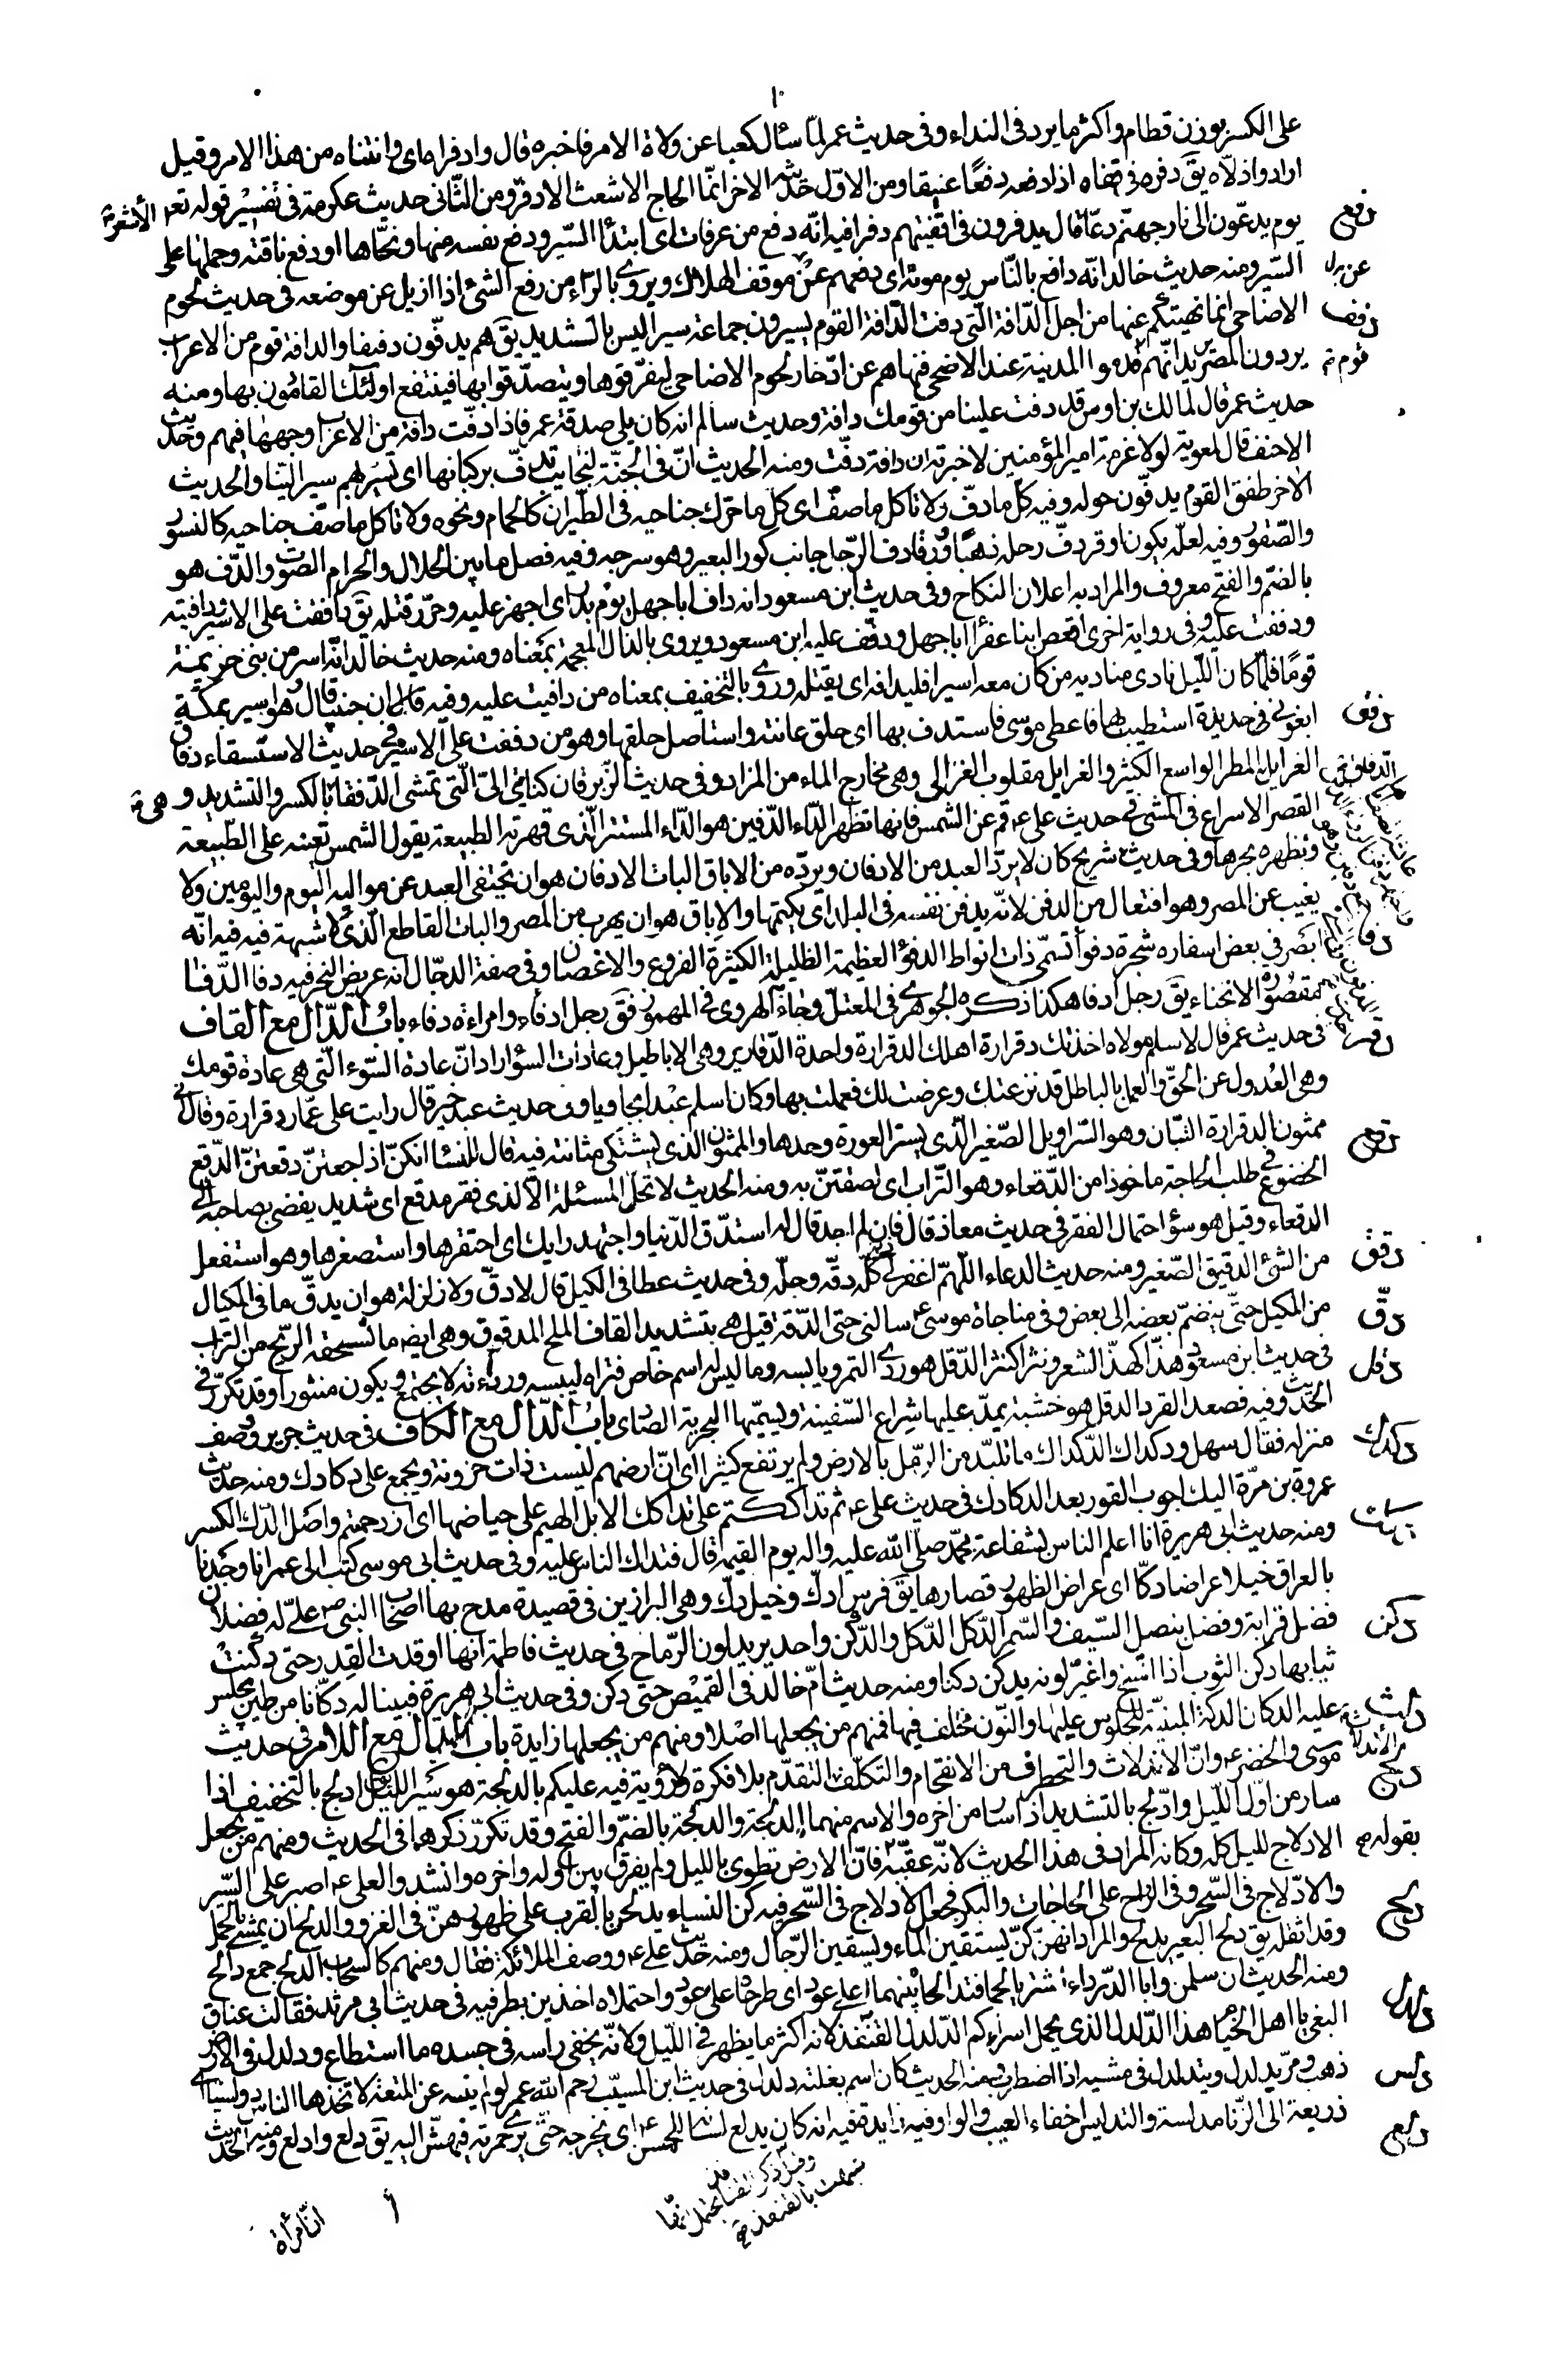 على الكسر بوزن قطام واكثر ما يرد فى النداء وفى حديث عمر لمّا سأل كعبا عن ولاة الامر فاخبره قال وادفراه اى وانتناه من هذا الامر وقيل
اراد واذلّاه يقَ دفره فى قفاه اذا دفعه دفعًا عنيفا ومن الاوّل حديثه الاخر انّما الحاج الاشعث الادفر ومن الثّانى حديث عكرمة فى تفسير قوله تعم
يوم يدعّون الى نار جهنّم دعّا قال يدفرون فى اقفيتهم دفرا فيه انّه دفع من عرفات اى ابتدأ السّير ودفع نفسه منها ونحّاها او دفع ناقته وحملها على
السّير ومنه حديث خالد انّه دافع بالنّاس يوم موته اى دفعهم عن موقف الهلاك ويروى بالرّاء من رفع الشئ اذا ازيل عن موضعه فى حديث لحوم
الاضاحى انما نهيتكم عنها من اجل الدّافة الّتى دفت الدّافة القوم يسيرون جماعة سيرا ليس بالشديد يقَ هم يدفّون دفيفا والدافة قوم من الاعراب
يردون المصر يريد انّهم قدموا المدينة عند الاضحى فنهاهم عن ادّخار لحوم الاضاحى ليفرّقوها ويتصدّقوا بها فينتفع اولئك القادمون بها ومنه
حديث عمر قال لمالك بن اوس قد دفت علينا من قومك دافة وحديث سالم انه كان يلى صدقة عمر فاذا دفّت دافة من الاعراب وجهها فيهم وحديث
الاحنف قال لمعوية لولا عزمة امير المؤمنين لاخبرته ان دافة دفّت ومنه الحديث انّ فى الجنّة لنجايب تدفّ بركبانها اى تسير بهم سيرا لينا والحديث
الاخر طفق القوم يدفّون حوله وفيه كل ما دفّ ولا تاكل ما صفّ اى كل ما حرّك جناحيه فى الطيران كالحمام ونحوه ولا تاكل ما صفّ جناحيه كالنسور
والصّقور وفيه لعلّه يكون اوقر دفّ رحله ذهبًا وورقا دف الرّحل جانب كور البعير وهو سرجه وفيه فصل ما بين الحلال والحرام الصّوت والدّف هو
بالضمّ والفتح معروف والمراد به اعلان النكاح وفى حديث ابن مسعود انه داف ابا جهل يوم بدر اى اجهز عليه وحرّر قتله يقَ دافقت على الاسير ودافيته
ودففت عليه وفى رواية اخرى اقعص ابنا عفرا ابا جهل ودفف عليه ابن مسعود ويروى بالذال المعجمة بمعناه ومنه حديث خالد انّه اسر من بنى خزيمة
قومًا فلمّا كان اللّيل نادى مناديه من كان معه اسيرا فليدافه اى يقتله وروى بالتخفيف بمعناه من دافيت عليه وفيه ان خبيبا قال وهو اسير بمكّة
ابغونى حديدة استطيب بها فاعطى موسى فاستدف بها اى حلق عانته واستاصل حلقها وهو من دففت على الاسير فى حديث الاستسقاء دفاق
الغزايل المطر الواسع الكثير والغزايل مقلوب الغزالى وهى مخارج الماء من المزاد وفى حديث الزّبرقان كناينى الىّ الّتى تمشى الدّفقا بالكسر والتشديد و
القصر الاسراع فى المشى فى حديث على ع قم عن الشمس فانها تظهر الدّاء الدّفين هو الدّاء المستتر الّذى قهرته الطبيعة يقول الشمس تعينه على الطّبيعة
وتظهره بحرها وفى حديث شريح كان لا يردّ العبد من الادفان ويردّه من الاباق البات الادفان هو ان يختفى العبد عن مواليه اليوم واليومين ولا
يغيب عن المصر وهو افتعال من الدفن لانّه يدفن نفسه فى البلد اى يكتمها والاباق هو ان يهرب من المصر والبات القاطع الّذى لا شبهة فيه فيه انّه
ابصر فى بعض اسفاره شجرة دفوا تسمّى ذات انواط الدفوا العظيمة الظليلة الكثيرة الفروع والاغصان وفى صفة الدجّال انه عريض النحر فيه دفا الدّفا
مقصورة الانحناء يقَ رجل ادفا هكذا ذكره الجوهرى فى المعتلّ وجاء الهروى فى المهموز فقَ رجل ادفاء وامراءة دفاء باب الدّال مع القاف
فى حديث عمر قال لاسلم مولاه اخذتك دقرارة اهلك الدقرارة واحدة الدّقارير وهى الاباطيل وعادات السؤ اراد انّ عادة السّوء الّتى هى عادة قومك
وهى العُدول عن الحقّ والعمل بالباطل قد نزعتك وعرضت لك فعملت بها وكان اسلم عبدا بجاويا وفى حديث عبد خير قال رايت على عمّار دقرارة وقال انى
ممثون الدقرارة التبّان وهو السّراويل الصّغير الّذى يستر العورة وحدها والممثون الذى يشتكى مثانته فيه قال للنسا انكنّ اذا جعتنّ دقعتنّ الدّقع
الخضوع فى طلب الحاجة ماخوذ من الدّقعاء وهو التّراب اى لصقتنّ به ومنه الحديث لا تحلّ المسئلة الّا لذى فقر مدقع اى شديد يفضى بصاحبه الى
الدقعاء وقيل هو سؤ احتمال الفقر فى حديث معاذ قال فان لم اجد قال له استدّق الدّنيا واجتهد رايك اى احتقرها واستصغرها وهو استفعل
من الشئ الدقيق الصّغير ومنه حديث الدعاء اللّهمّ اغفر لى كلّه دقّه وجلّه وفى حديث عطا فى الكيل قال لا دقّ ولا زلزلة هو ان يدقّ ما فى المكيال
من المكيل حتّى ينضمّ بعضه الى بعض وفى مناجاة موسى ع سالنى حتى الدّقة قيل هى بتشديد القاف الملح المدقوق وهى ايضه ما تسحقه الريح من التراب
فى حديث ابن مسعود هذّا كهذّ الشعر ونثرا كنثر الدّقل هو ردى التمر ويابسه وما ليس له اسم خاص فتراه ليبسه ورداءته لا يجتمع ويكون منثورا وقد تكرّر فى
الحديث وفيه فصعد القرد الدقل هو خشبة يمدّ عليها شراع السّفينة ويسمّيها البحرية الصارى باب الدّال مع الكاف فى حديث جرير وصف
منزله فقال سهل ودكداك الدّكداك ما تلبّد من الرّمل بالارض ولم يرتفع كثيرا اى انّ ارضهم ليست ذات حزونة ويجمع على دكادك ومنه حديث
عمرو بن مرّة اليك اجوب القور بعد الدكادك فى حديث على ع ثم تداككتم علىّ تداكك الابل الهيم على حياضها اى ازدحمتم واصل الدّك الكسر
ومنه حديث ابى هريرة انا اعلم الناس بشفاعة محمّد صلى الله عليه واله يوم القيمة قال فتداك الناس عليه وفى حديث ابى موسى كتب الى عمر انا وجدنا
بالعراق خيلا عراضا دكّا اى عراض الظهور قصارها يقَ فرس ادكّ وخيل دكّ وهى البراذين فى قصيدة مدح بها اصحاب النبى ص علىّ له فضلان
فضل قرابة وفضل بنصل السّيف والسّمر الدّكل الدّكل والدّكن واحد يريد لون الرّماح فى حديث فاطمة انها اوقدت القدر حتى دكنت
ثيابها دكن الثوب اذا اتّسخ واغبرّ لونه يدكن دكنا ومنه حديث امّ خالد فى القميص حتى دكن وفى حديث ابى هريرة فبينا له دكّانا من طين يجلس
عليه الدكان الدكة المبنيّة للجلوس عليها والنّون مختلف فيها فمنهم من يجعلها اصلا ومنهم من يجعلها زايدة باب الدال مع اللام فى حديث
موسى والخضر ع وانّ الاندلاث والتخطرف من الانقحام والتكلّف التقدّم بلا فكرة ولا رؤية فيه عليكم بالدلجة هو سير الليل يقَ ادلج بالتخفيف اذا
سار من اوّل اللّيل وادّلج بالتشديد اذا سار من اخره والاسم منهما الدلجة والدلجة بالضمّ والفتح وقد تكرّر ذكرهما فى الحديث ومنهم من يجعل
الادلاج لليل كله وكانه المراد فى هذا الحديث لانّه عقّبه فانّ الارض تطوى بالليل ولم يفرق بين اوله واخره وانشدوا لعلى ع اصبر على السّير
والادّلاج فى السّحر وفى الرّواح على الحاجات والبكر فجعل الادلاج فى السّحر فيه كنّ النساء يدلحن بالقرب على ظهورهنّ فى الغزو والدلح ان يمشى بالحمل
وقد اثقله يقَ دلح البعير يدلح والمراد انهنّ كنّ يستقين الماء ويسقين الرّجال ومنه حديث على ع ووصف الملائكة فقال ومنهم كالسحاب الدلح جمع دالح
ومنه الحديث ان سلمن وابا الدّرداء اشتريا لحما فتدالحاه بينهما على عود اى طرحاه على عود واحتملاه اخذين بطرفيه فى حديث ابى مرثد فقالت عناق
البغى يا اهل الخيام هذا الدّلدل الذى يحمل اسراءكم الدّلدل القنفذ لانه اكثر ما يظهر فى اللّيل ولانّه يخفى راسه فى جسده ما استطاع ودلدل فى الارض
ذهب ومرّ يدلدل ويتدلدل فى مشيه اذا اضطرب ومنه الحديث كان اسم بغلته دلدل فى حديث ابن المسيّب رحم الله عمر لو لم ينه عن المتعة لاتخذها الناس دولسيا اى
ذريعة الى الزّنا مدلسة والتدليس اخفاء العيب والواو فيه زايدة فيه انه كان يدلع لسانه للحسن ع اى يخرجه حتى يرى حمرته فيهشّ اليه يقَ دلع وادلع ومنه الحديث
دفع
دفف
دفق
دفن
دفا
دقر
دقع
دقق
دقّ
دقل
دكدك
دكن
دلث
دلج
بقوله
دلح
دلدل
دلس
دلع
انّ امرأة